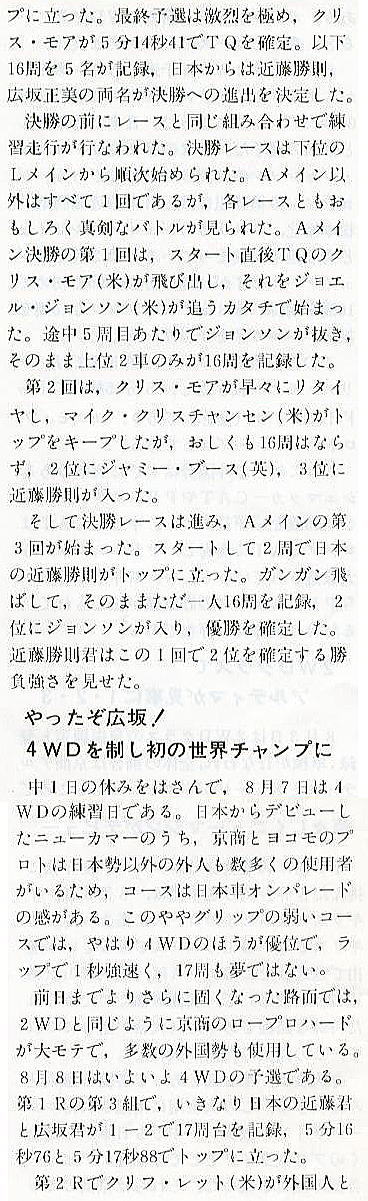 プに立った。最終予選は激烈を極め，クリ
ス・モアが5分14秒41でTQを確定。以下
16周を5名が記録，日本からは近藤勝則，
広坂正美の両名が決勝への進出を決定した。
　決勝の前にレースと同じ組み合わせで練
習走行が行なわれた。決勝レースは下位の
Lメインから順次始められた。Aメイン以
外はすべて1回であるが，各レースともお
もしろく真剣なバトルが見られた。Aメイ
ン決勝の第1回は，スタート直後TQのク
リス・モア(米)が飛び出し，それをジョエ
ル・ジョンソン(米)が追うカタチで始まっ
た。途中5周目あたりでジョンソンが抜き，
そのまま上位2車のみが16周を記録した。
　第2回は，クリス・モアが早々にリタイ
ヤし，マイク・クリスチャンセン(米)がト
ップをキープしたが，おしくも16周はなら
ず，2位にジャミー・ブース(英)，3位に
近藤勝則が入った。
　そして決勝レースは進み，Aメインの第
3回が始まった。スタートして2周で日本
の近藤勝則がトップに立った。ガンガン飛
ばして，そのままただ一人16周を記録，2
位にジョンソンが入り，優勝を確定した。
近藤勝則君はこの1回で2位を確定する勝
負強さを見せた。
やったぞ広坂！
4WDを制し初の世界チャンプに
　中1日の休みをはさんで，8月7日は4
WDの練習日である。日本からデビューし
たニューカマーのうち，京商とヨコモのプ
ロトは日本勢以外の外人も数多くの使用者
がいるため，コースは日本車オンパレード
の感がある。このややグリップの弱いコー
スでは，やはり4WDのほうが優位で，ラ
ップで1秒強速く，17周も夢ではない。
　前日までよりさらに固くなった路面では，
2WDと同じように京商のロープロハード
が大モテで，多数の外国勢も使用している。
8月8日はいよいよ4WDの予選である。
第1Rの第3組で，いきなり日本の近藤君
と広坂君が1－2で17周台を記録，5分16
秒76と5分17秒88でトップに立った。
　第2Rでクリフ・レット(米)が外国人と